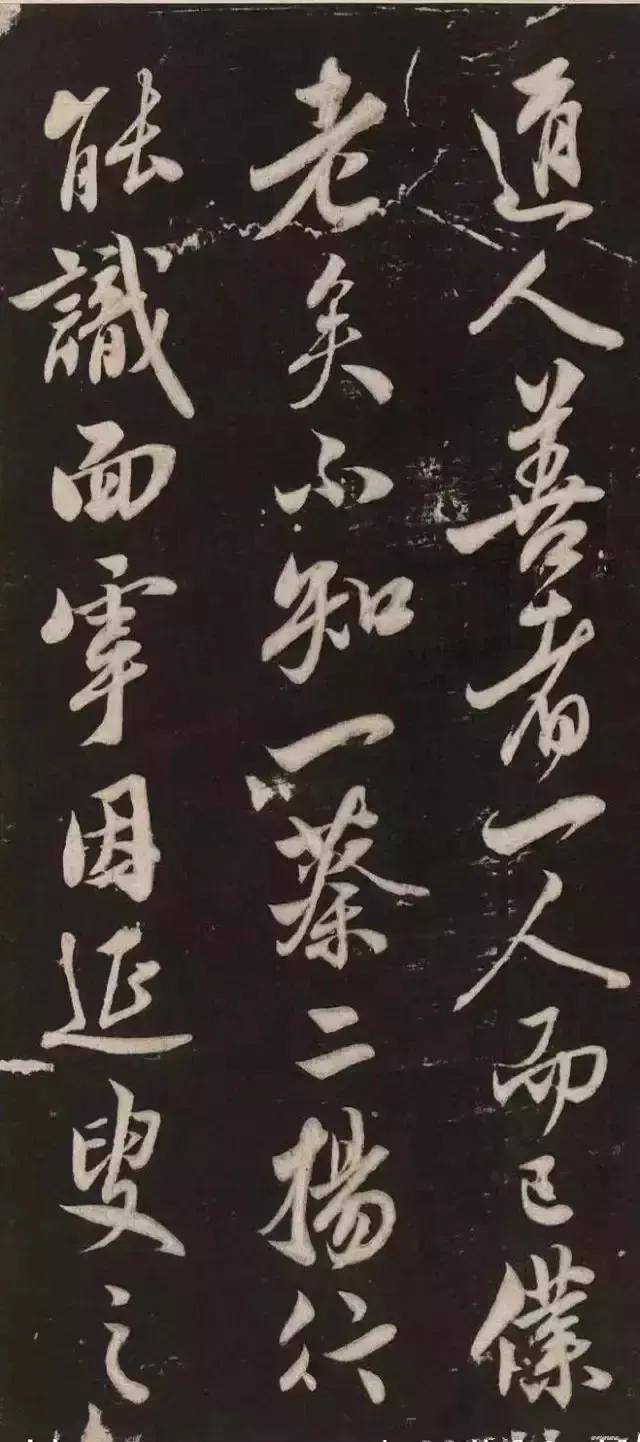 道人善者一人而已僕
老矣不知一蔡二揚行
能識面虖因延叟之